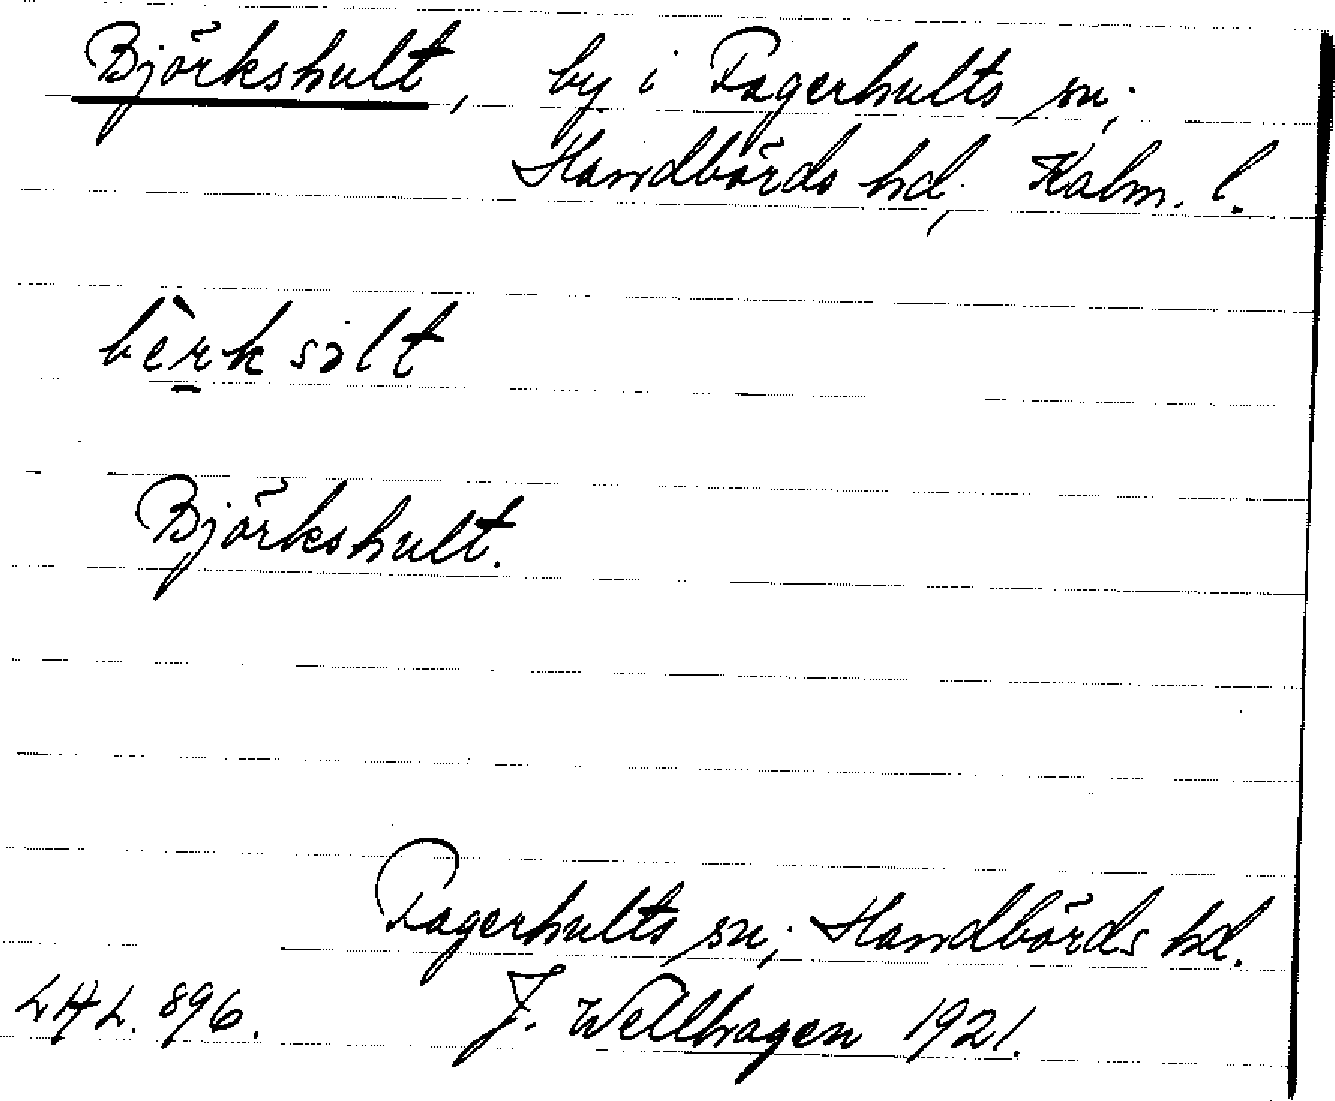 Björkshult, by i Fagerhults sn;
Handbörds hd, Kalm. l.
bèrksɔlt
Björkshult.
Fagerhults sn; Handbörds hd.
J. Wellhagen 1921.